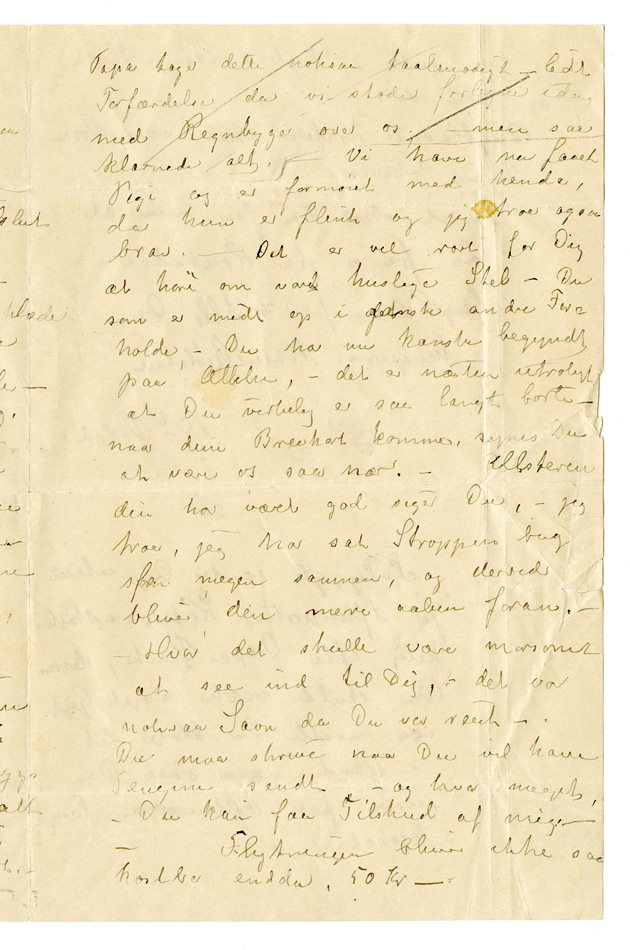 Papa tage dette noksaa taalmodigt – lidt
Forfærdelse da vi stode idag
med Regnbyger over os. – men saa
klarnede alt. – Vi have nu faaet
Pige og er fornøiet med henda,
da hun er flink og jeg troe ogsaa
brav. – Det er vel rart for Dig
at høre om vort huslige Stel – Du
som er midt op i ganske andre For=
holde, – Du ha nu kanske begyndt
paa – det er næsten utroligt
at Du virkelig er saa langt borte –
naa dine Brevkort komme, synes Du
at være os saa nær. –
din ha været god siger Du, – jeg
troe, jeg har sat Stroppen bag
for megen sammen, og derved
blive den mere aaben foran. –
– Hvor det skulle være morsomt
at see ind til Dig, – det var
noksaa Savn da Du var reist –.
Du maa skrive naa Du vil have
Pengene sendt – og hvor meget,
– Du kan faa Tilskud af mig –
– Flytningen bliver ikke saa
kostba endda, 50 Kr –